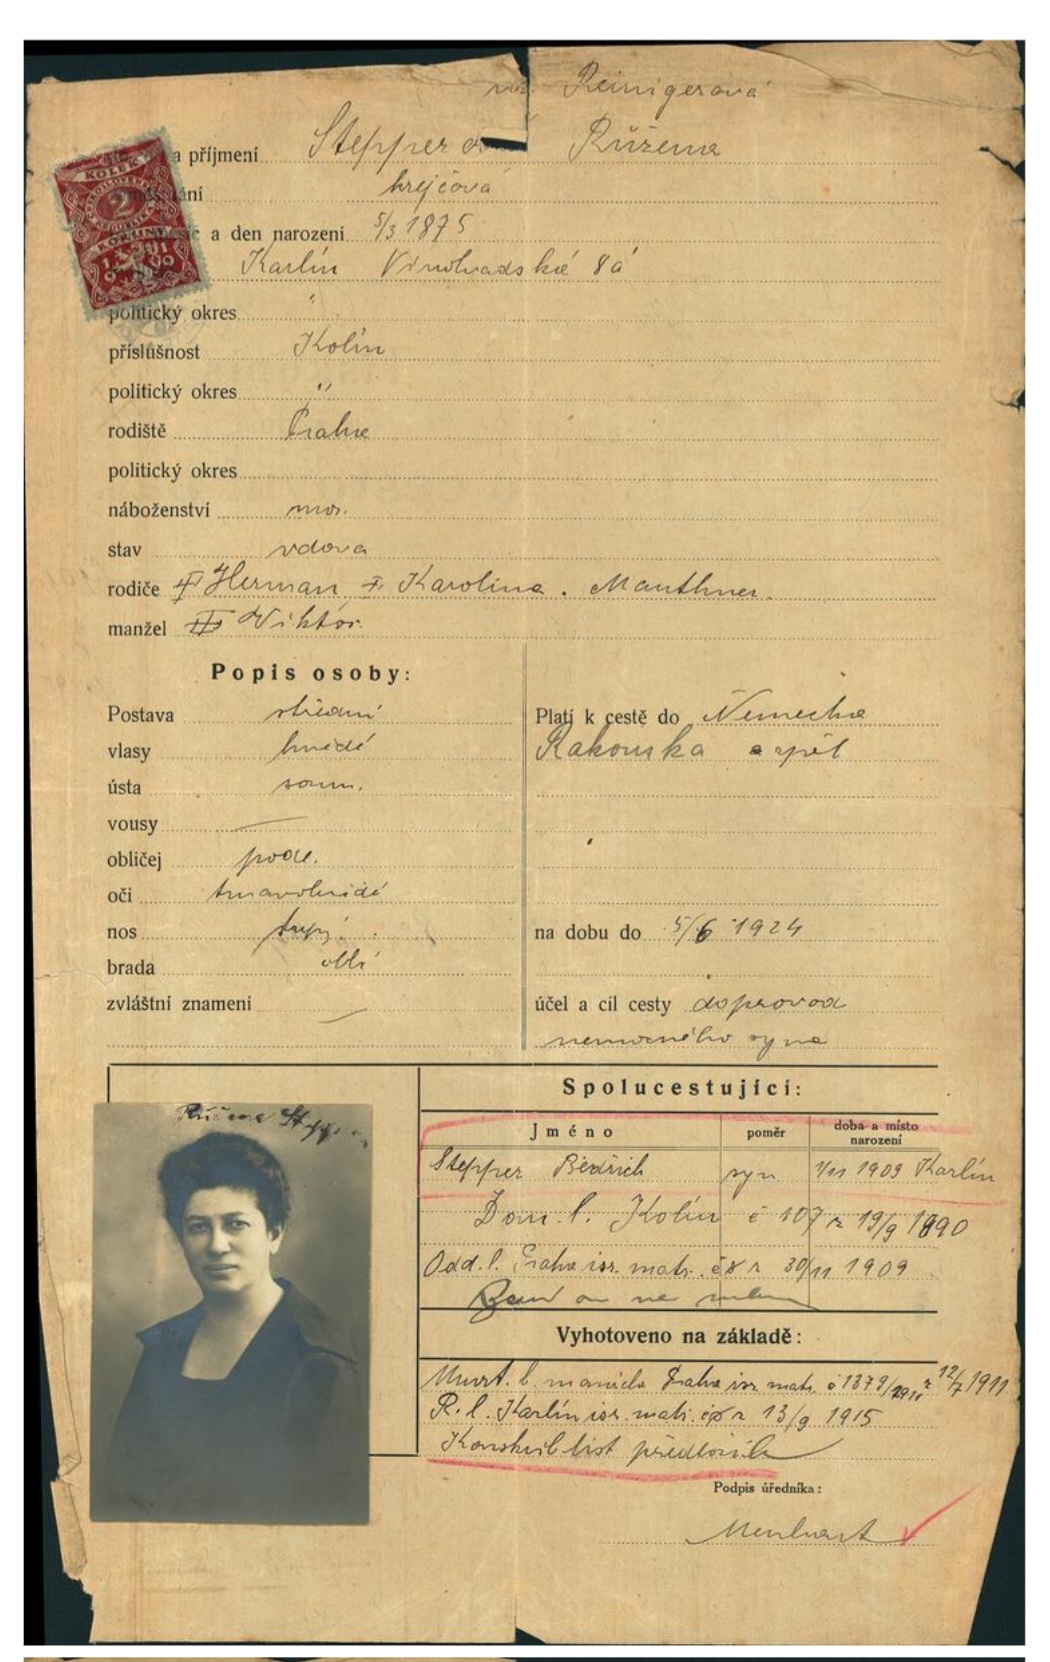 roz. Reinigerová
a příjmení Stepperová Růžena
krejčová
a den narození 5/3 1875
Karlín Vinohradská 8a
politický okres "
příslušnost Kolín
politický okres "
rodiště Praha
politický okres
náboženství mos.
stav vdova
rodiče Herman Karolina. Mauthner.
manžel Viktor.
Popis osoby:
Postava střední
vlasy hnědé
ústa soum.
vousy
obličej podl.
oči tmavohnědé
nos tupý.
brada oblá
zvláštní znamení
Platí k cestě do Německa
Rakouska a zpět
na dobu do 5/6 1924
účel a cíl cesty doprovod
nemocného syna
KOLEK
2
KORUNY
Růžena Stepper
Spolucestující:
Jméno poměr doba a místo narození
Stepper Bedřich syn 1/11 1909 Karlín
Dom. l. Kolín č 107 z 19/9 1890
Odd. l. Praha isr. matr. z 30/11 1909
Vyhotoveno na základě:
Úmrt. l. manžela Praha isr. matr. č 1379/1911 z 12/7 1911
R. l. Karlín isr. matr. z 13/9 1915
list předložila
Podpis úředníka: